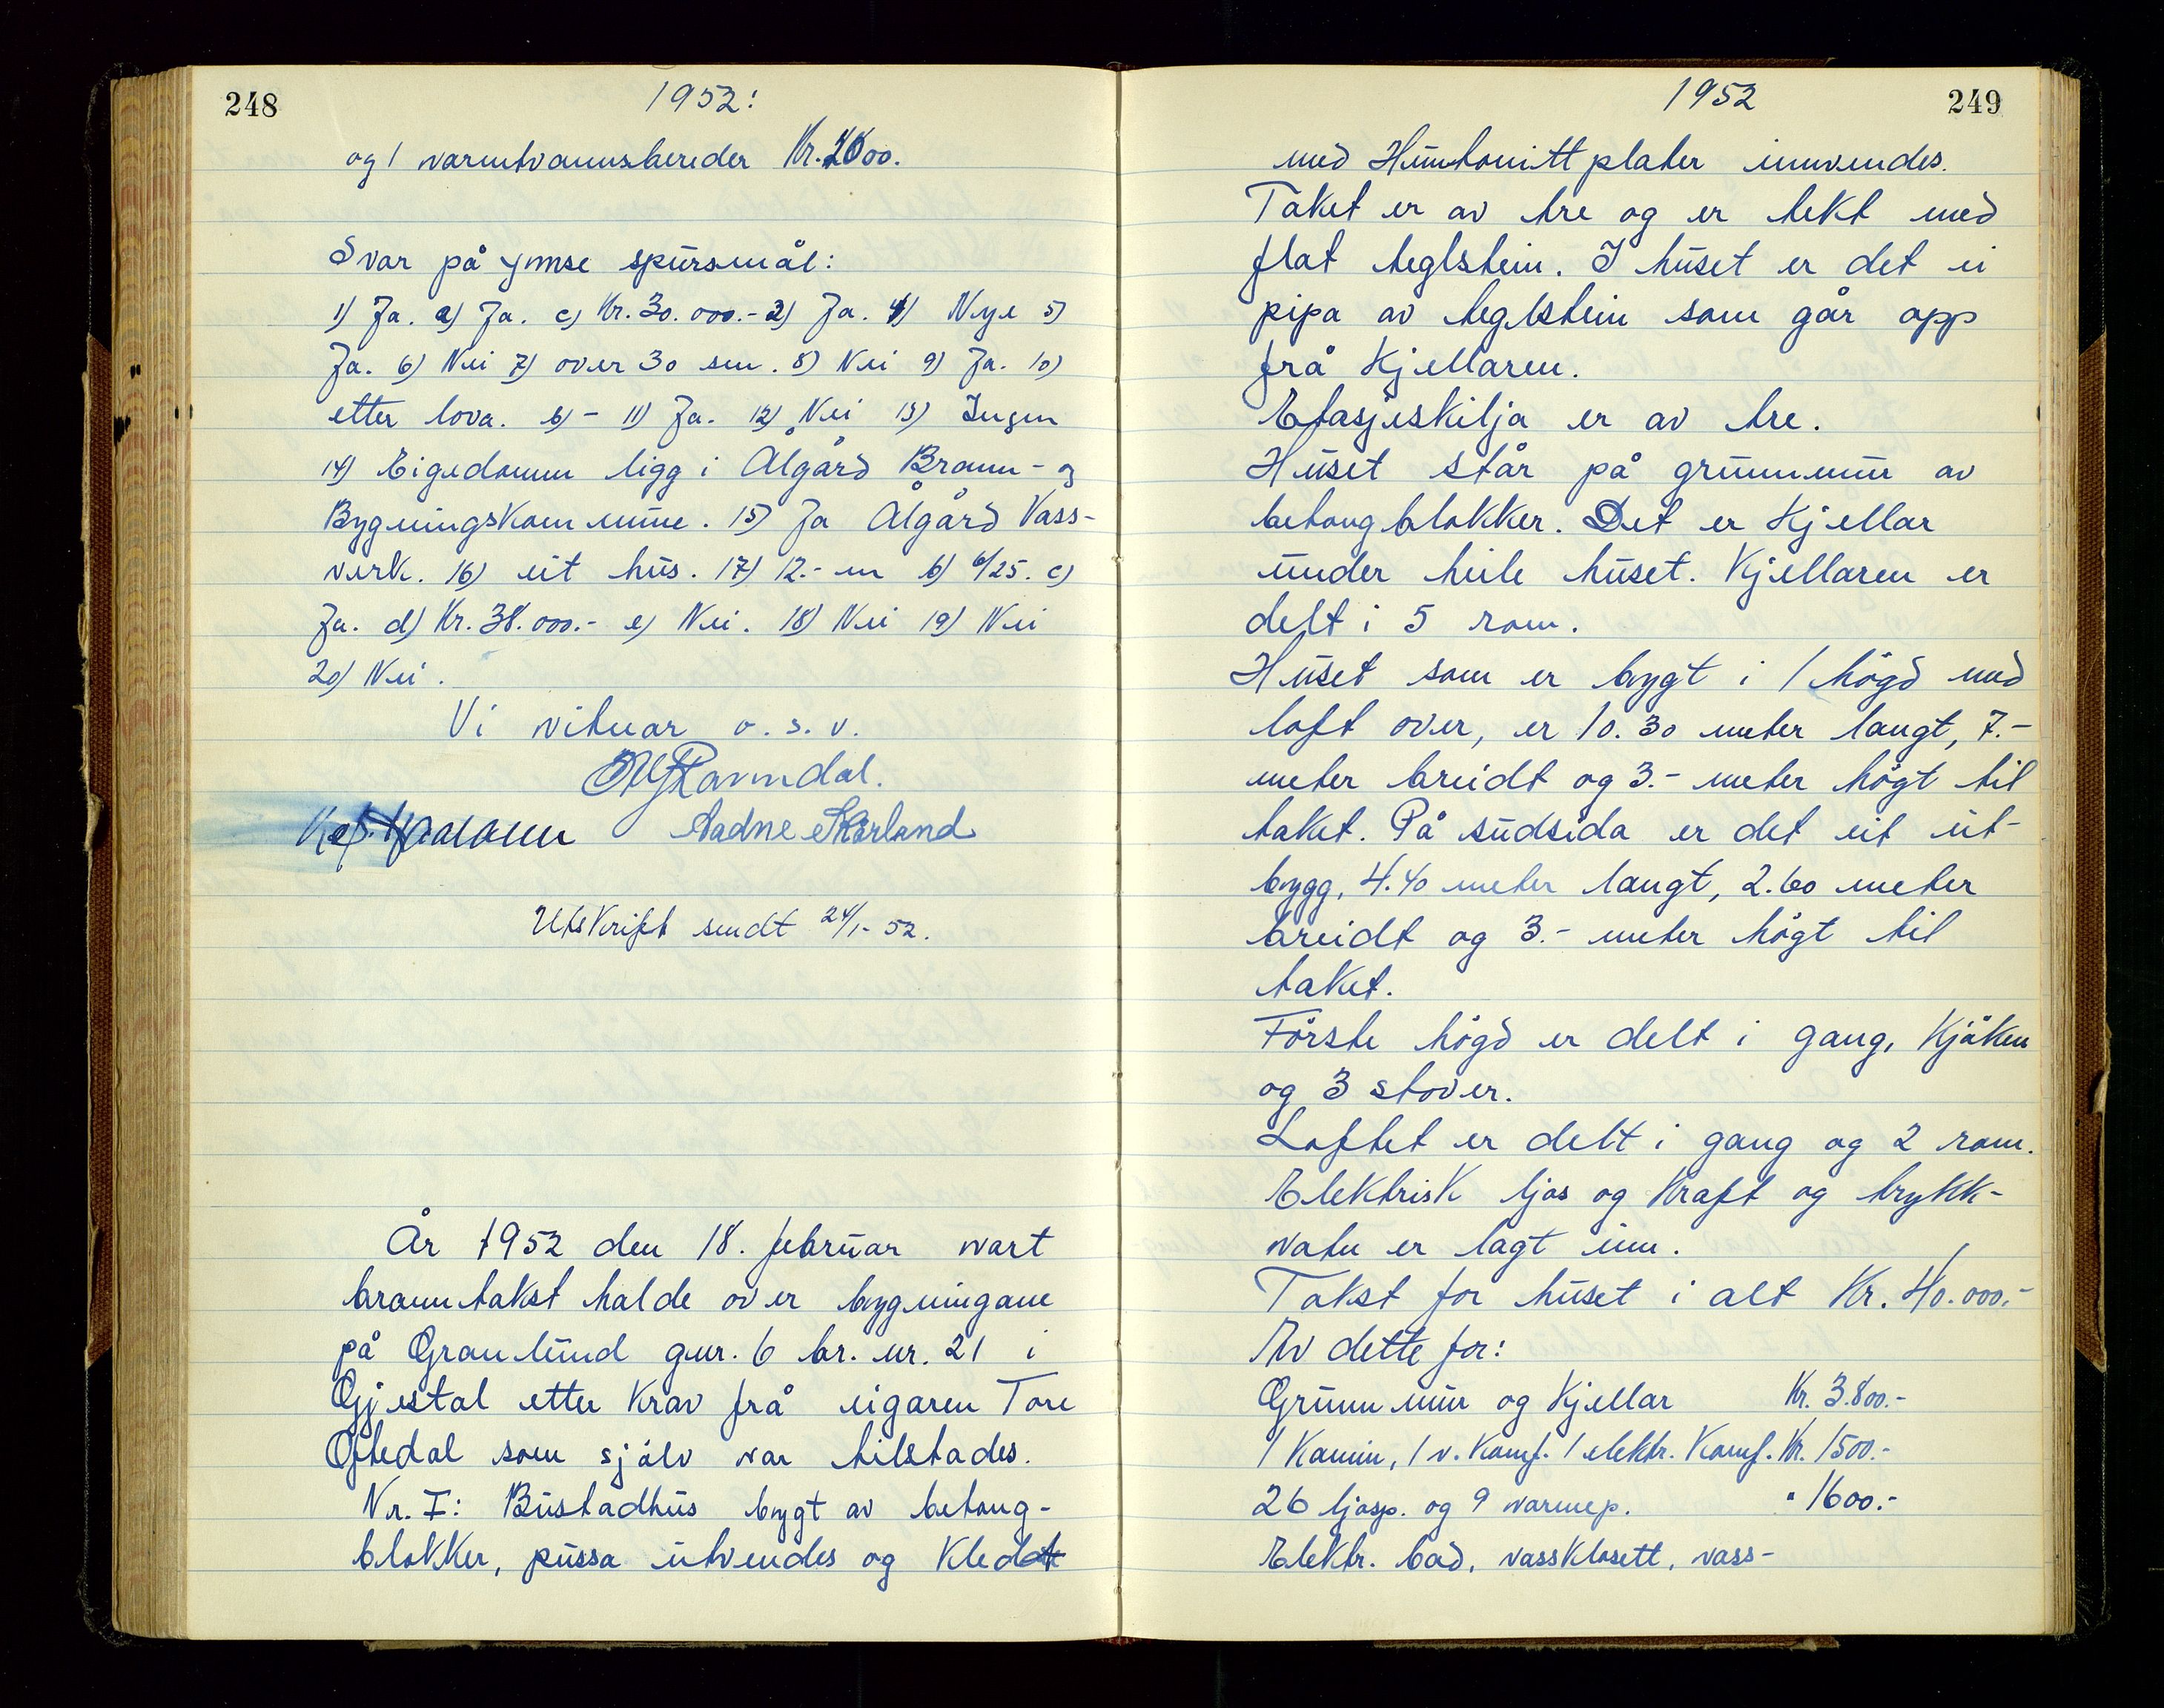 248
1952:
og 1 varmtvannsbereder Kr. 2600.
Svar på ymse spursmål:
1) Ja. a) Ja. c) Kr. 30.000.- 2) Ja. 4) Nye 5)
Ja. 6) Nei 7) over 30 sm. 8) Nei 9) Ja. 10)
etter lova. b) - 11) Ja. 12) Nei 13) Ingen
14) Eigedomm ligg i Ålgård Brann- og
Bygningskommune. 15) Ja Ålgård Vass-
verk. 16) eit hus. 17) 12.- m b) 6/25. c)
Ja. d) Kr. 38.000.- e) Nei. 18) Nei 19) Nei
20) Nei.
Vi vitnar o. s. v.
Ravndal.
Aadne Skårland
Utskrift sendt 24/1- 52.
År 1952 den 18. februar vart
branntakst halde over bygningane
på Granlund gnr. 6 br. nr. 21 i
Gjestal etter krav frå eigaren Tore
Oftedal som sjølv var tilstades.
Nr. I: Bustadhus bygt av betong-
blokker, pussa utvendes og kledt
1952
249
med Huntonitt plater innvendes.
Taket er av tre og er tekt med
flat teglstein. I huset er det ei
pipa av teglstein som går opp
frå kjellaren.
Etasjeskilja er av tre.
Huset står på grunnmur av
betongblokker. Det er kjellar
under heile huset. Kjellaren er
delt i 5 rom.
Huset som er bygt i 1 høgd med
loft over, er 10.30 meter langt, 7.-
meter breidt og 3.- meter høgt til
taket. På sudsida er det eit ut-
bygg, 4.40 meter langt, 2.60 meter
breidt og 3.- meter høgt til
taket.
Første høgd er delt i gang, kjøken
og 3 stover.
Loftet er delt i gang og 2 rom.
Elektrisk ljos og kraft og trykk-
vatn er lagt inn.
Takst for huset i alt Kr. 40.000.-
Av dette for:
Grunnmur og kjellar Kr. 3.800.-
1 Kamin, 1 v. komf. 1 elektr. komf. Kr. 1500.-
26 ljosp. og 9 varmep. " 1600.-
Elektr. bad, vassklosett, vass-